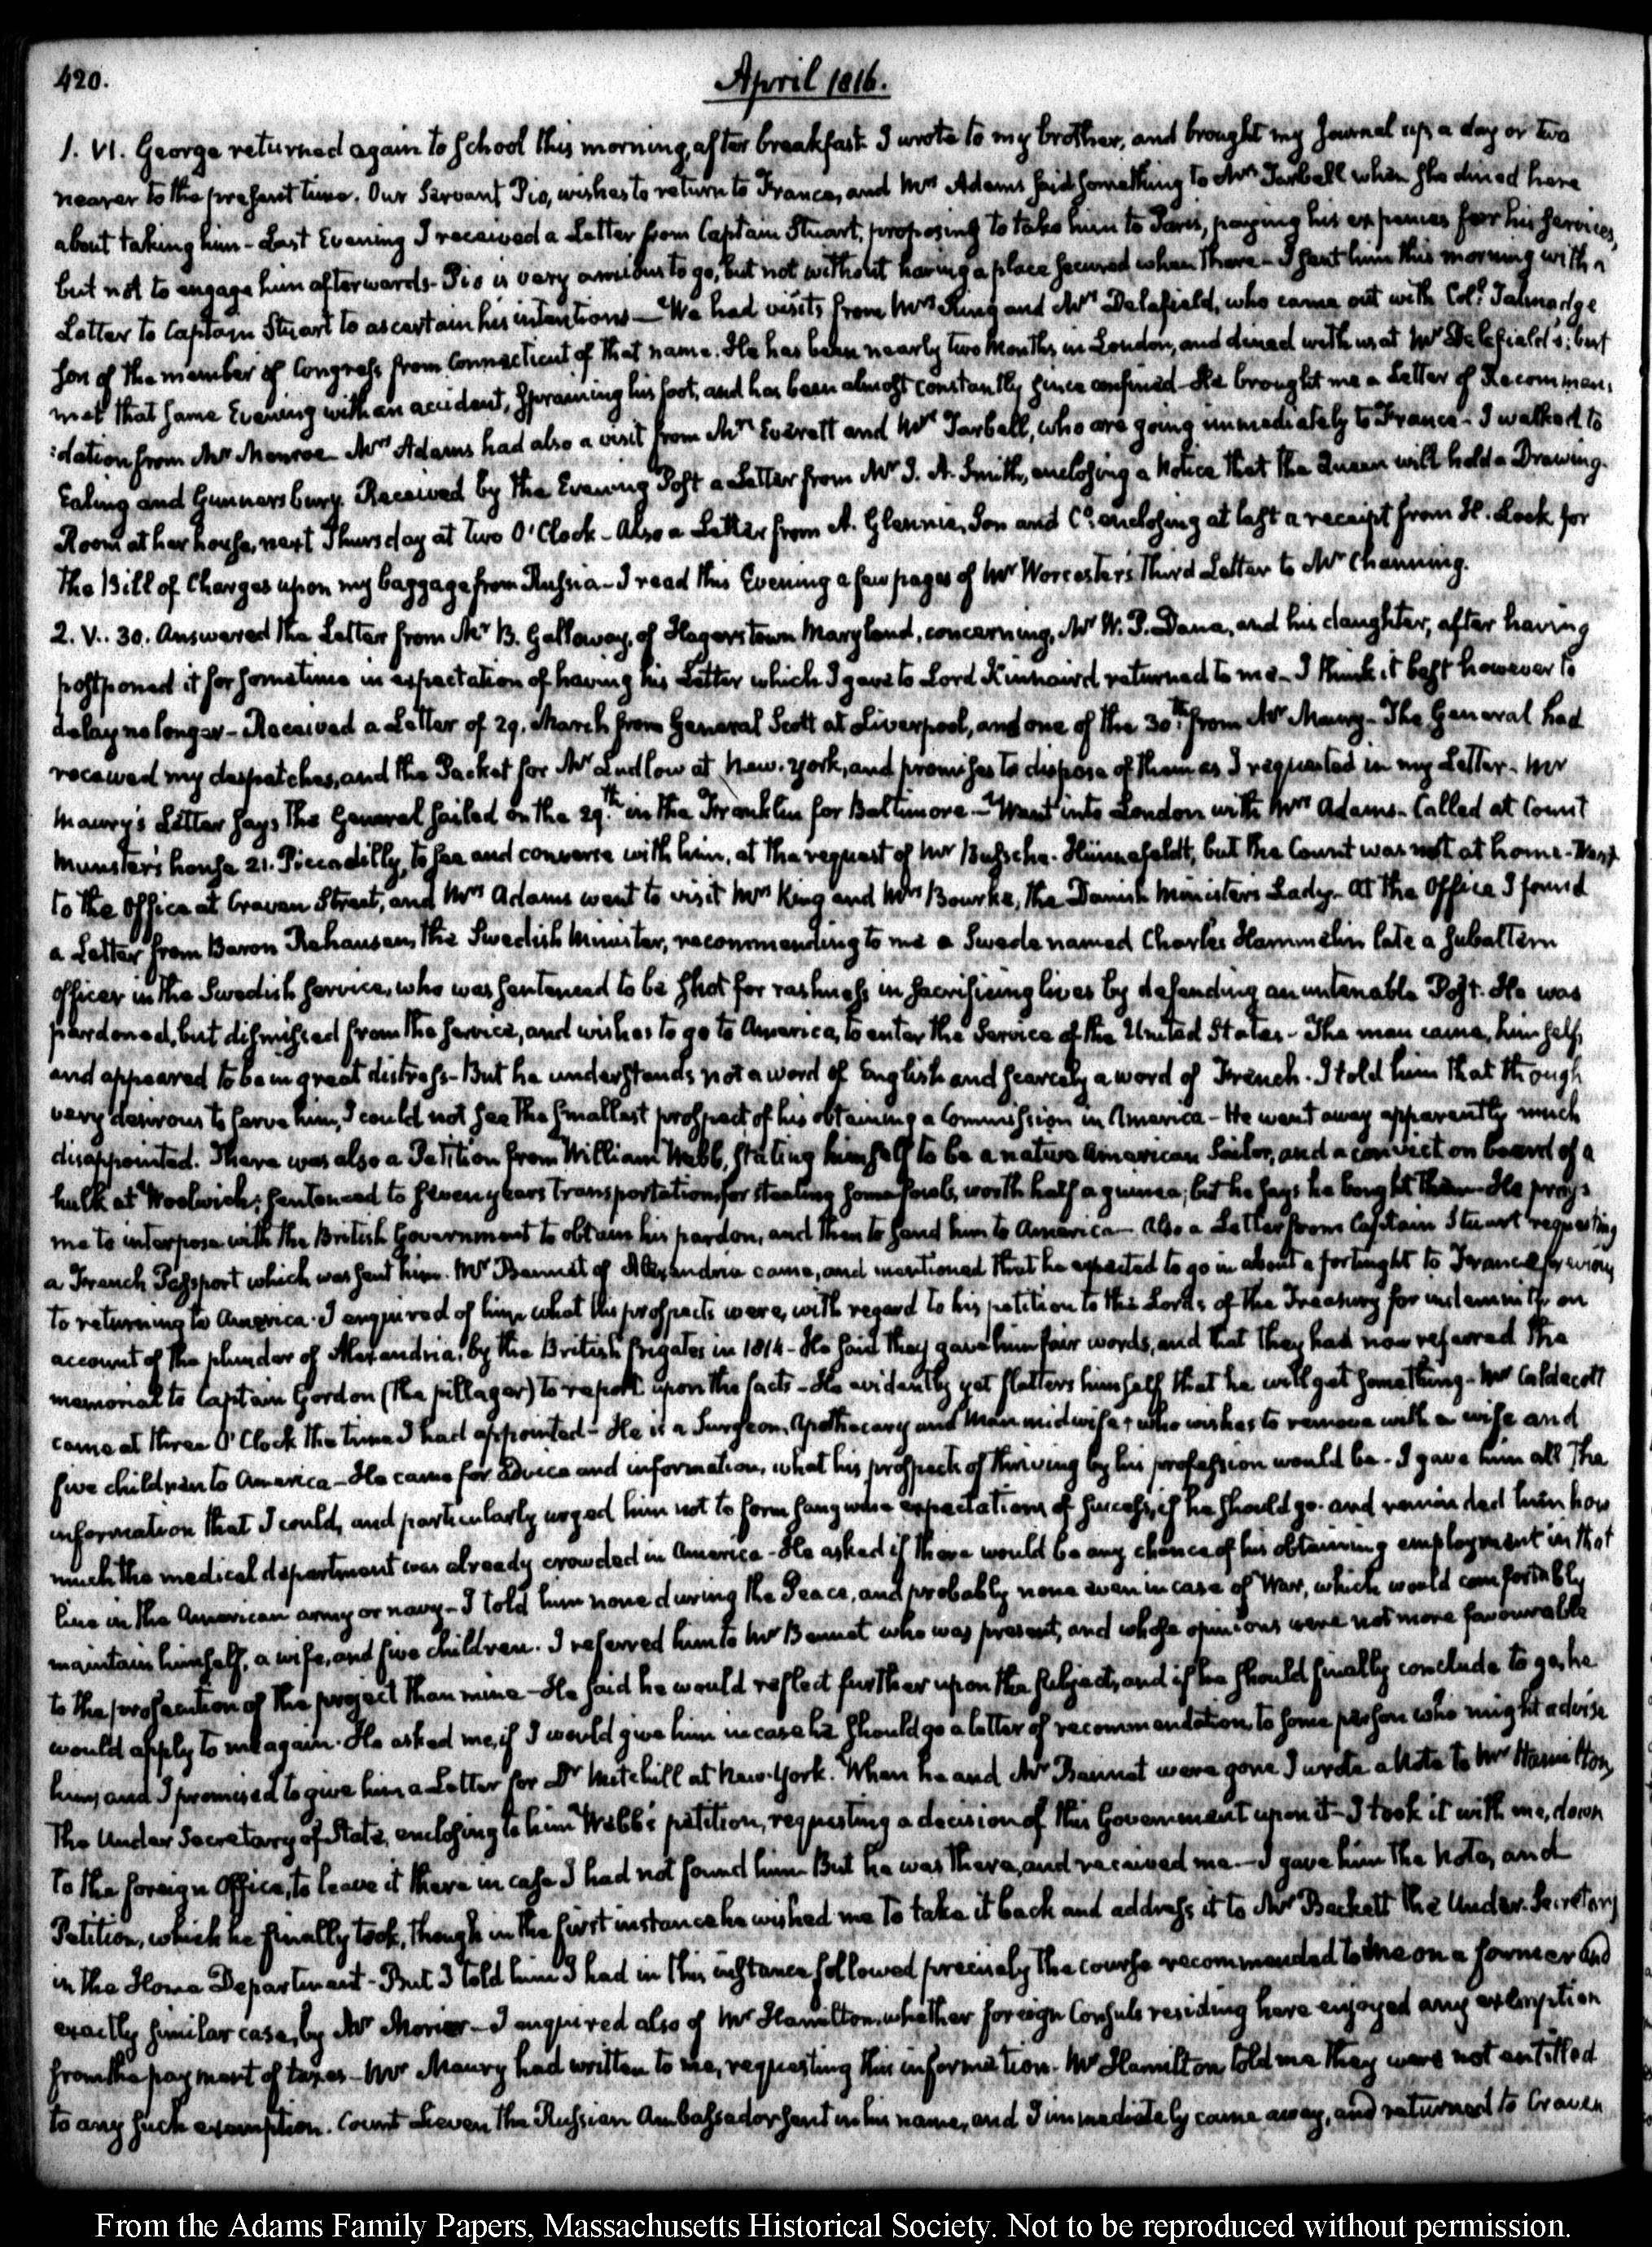 420.
April 1816.
1. VI. George returned again to School this morning, after breakfast. I wrote to my brother, and brought my Journal up a day or two
nearer to the present time. Our Servant Pio, wishes to return to France, and Mrs Adams said something to Mrs Tarbell when she dined here
about taking him - Last Evening I received a Letter from Captain Stuart, proposing to take him to Paris, paying his expenses for his services,
but not to engage him afterwards - Pio is very anxious to go, but not without having a place secured when there - I sent him this morning with a
Letter to Captain Stuart to ascertain his intentions — We had visits from Mrs King and Mrs Delafield, who came out with Coll. Talmadge
Son of the member of Congress from Connecticut of that name. He has been nearly two Months in London, and dined with us at Mr Delafield's; but
met that same Evening with an accident, spraining his foot, and has been almost constantly since confined - He brought me a Letter of Recommen,
:dation from Mr Monroe - Mrs Adams had also a visit from Mrs Everett and Mrs Tarbell, who are going immediately to France - I walked to
Ealing and Gunnersbury. Received by the Evening Post a Letter from Mr J. A. Smith, enclosing a Notice that the Queen will hold a Drawing-
Room at her house, next Thursday at two O'Clock - Also a Letter from A. Glennie, Son and Co. enclosing at last a receipt from H. Lock for
the Bill of Charges upon my baggage from Russia - I read this Evening a few pages of Mr Worcester's third Letter to Mr Channing.
2. V. 30. Answered the Letter from Mr B. Galloway, of Hagerstown Maryland, concerning, Mr W. P. Dana, and his daughter, after having
postponed it for sometime in expectation of having his Letter which I gave to Lord Kinnaird returned to me - I think it best however to
delay no longer - Received a Letter of 29. March from General Scott at Liverpool, and one of the 30th. from Mr Maury - The General had
received my despatches, and the Packet for Mr Ludlow at New-York, and promises to dispose of them as I requested in my Letter - Mr
Maury's Letter says the General sailed on the 29.th in the Franklin for Baltimore - Went into London with Mrs Adams. Called at Count
Munster's house 21. Piccadilly, to see and converse with him, at the request of Mr Bussche-Hünnefeldt, but the Count was not at home - Went
to the Office at Craven Street, and Mrs Adams went to visit Mrs King and Mrs Bourke, the Danish Minister's Lady - At the Office I found
a Letter from Baron Rehausen, the Swedish Minister, recommending to me a Swede named Charles Hammelin late a subaltern
officer in the Swedish service, who was sentenced to be shot for rashness in sacrificing lives by defending an untenable Post. He was
pardoned, but dismissed from the service, and wishes to go to America, to enter the Service of the United States - The man came, himself,
and appeared to be in great distress - But he understands not a word of English and scarcely a word of French. I told him that though
very desirous to serve him, I could not see the smallest prospect of his obtaining a Commission in America - He went away apparently much
disappointed. There was also a Petition from William Webb, stating himself to be a native American Sailor, and a convict on board of a
hulk at Woolwich; sentenced to seven years transportation, for stealing some fowls, worth half a guinea; but he says he bought them - He prays
me to interpose with the British Government to obtain his pardon, and then to send him to America - Also a Letter from Captain Stuart requesting
a French Passport which was sent him. Mr Bennet of Alexandria came, and mentioned that he expected to go in about a fortnight to France previous
to returning to America. I enquired of him what his prospects were, with regard to his petition to the Lords of the Treasury for indemnity on
account of the plunder of Alexandria, by the British frigates in 1814 - He said they gave him fair words, and that they had now referred the
memorial to Captain Gordon (the pillager) to report upon the facts - He evidently yet flatters himself that he will get something - Mr Caldecott
came at three O'Clock the time I had appointed - He is a Surgeon, Apothecary and Man midwife, who wishes to remove with a wife and
five children to America - He came for advice and information, what his prospects of thriving by his profession would be - I gave him all the
information that I could, and particularly urged him not to form sanguine expectations of success, if he should go - and reminded him how
much the medical department was already crowded in America - He asked if there would be any chance of his obtaining employment in that
line in the American army or navy - I told him none during the Peace, and probably none even in case of War, which would comfortably
maintain himself, a wife, and five children. I referred him to Mr Bennet who was present, and whose opinions were not more favourable
to the prosecution of the project than mine - He said he would reflect further upon the subject, and if he should finally conclude to go, he
would apply to me again. He asked me, if I would give him in case he should go a letter of recommendation to some person who might advise
him, and I promised to give him a Letter for Dr Mitchill at New-York. When he and Mr Bennet were gone I wrote a Note to Mr Hamilton,
the Under Secretary of State, enclosing to him Webb's petition, requesting a decision of this Government upon it - I took it with me, down
to the foreign Office, to leave it there in case I had not found him - But he was there, and received me - I gave him the Note, and
Petition, which he finally took, though in the first instance he wished me to take it back and address it to Mr Beckett the Under-Secretary
in the Home Department - But I told him I had in this instance followed precisely the course recommended to me on a former and
exactly similar case, by Mr Morier - I enquired also of Mr Hamilton, whether foreign Consuls residing here enjoyed any exemption
from the payment of taxes - Mr Maury had written to me, requesting this information. Mr Hamilton told me they were not entitled
to any such exemption. Count Lieven the Russian Ambassador sent in his name, and I immediately came away, and returned to Craven
From the Adams Family Papers, Massachusetts Historical Society. Not to be reproduced without permission.